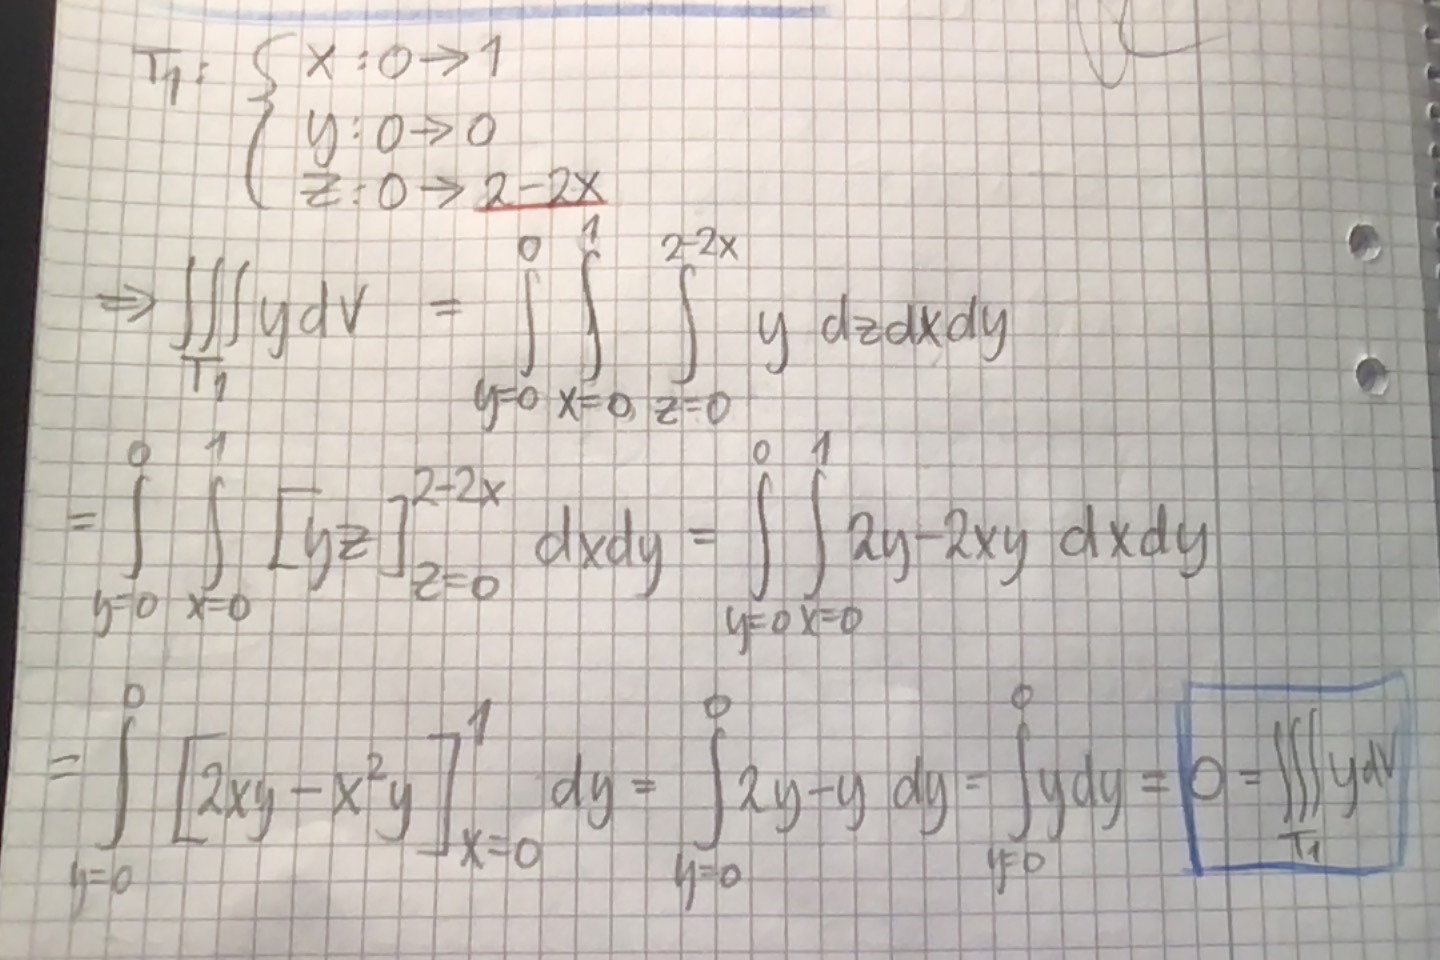 T₁: { x : 0 → 1
y : 0 → 0
z : 0 → 2-2x
⇒ ∭_{T₁} y dV = ∫_{y=0}^{0} ∫_{x=0}^{1} ∫_{z=0}^{2-2x} y dzdxdy
= ∫_{y=0}^{0} ∫_{x=0}^{1} [yz]_{z=0}^{2-2x} dxdy = ∫_{y=0}^{0} ∫_{x=0}^{1} 2y-2xy dxdy
= ∫_{y=0}^{0} [2xy - x²y]_{x=0}^{1} dy = ∫_{y=0}^{0} 2y-y dy = ∫_{y=0}^{0} y dy = 0 = ∭_{T₁} y dV